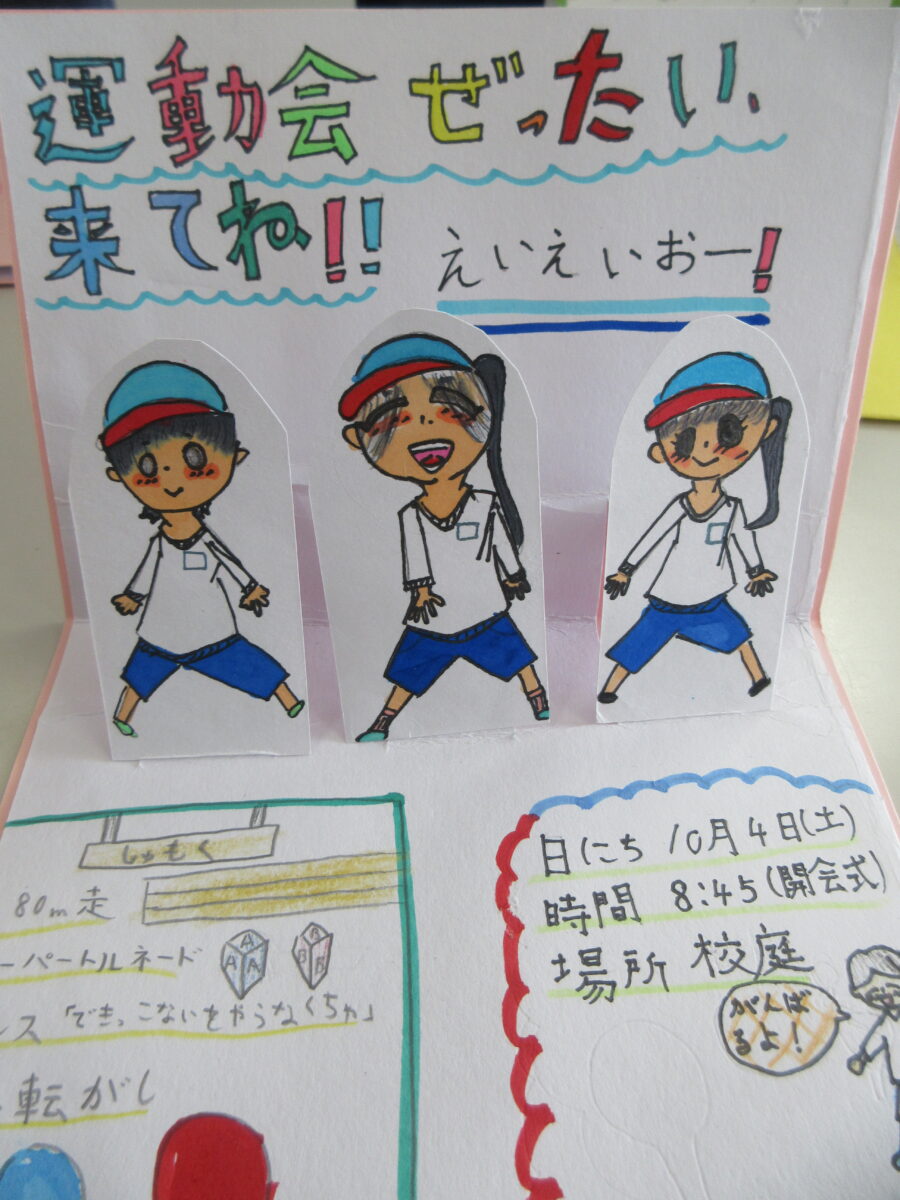 運動会 ぜったい、
来てね、!!
えいえいおー!
しゅもく
80m走
ーパートルネード
A A A B B B
ス「できっこないをやらなくちゃ」
転がし
日にち 10月4日(土)
時間 8:45(開会式)
場所 校庭
がんば
るよ!